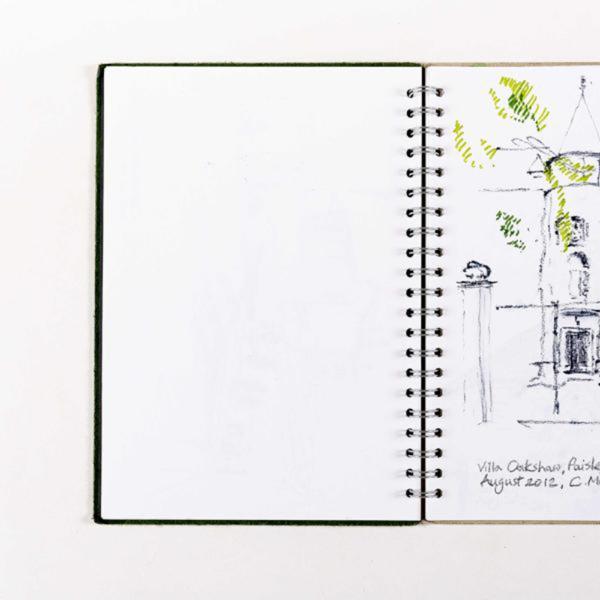 Villa Oakshaw, Paisle
August 2012, C. M